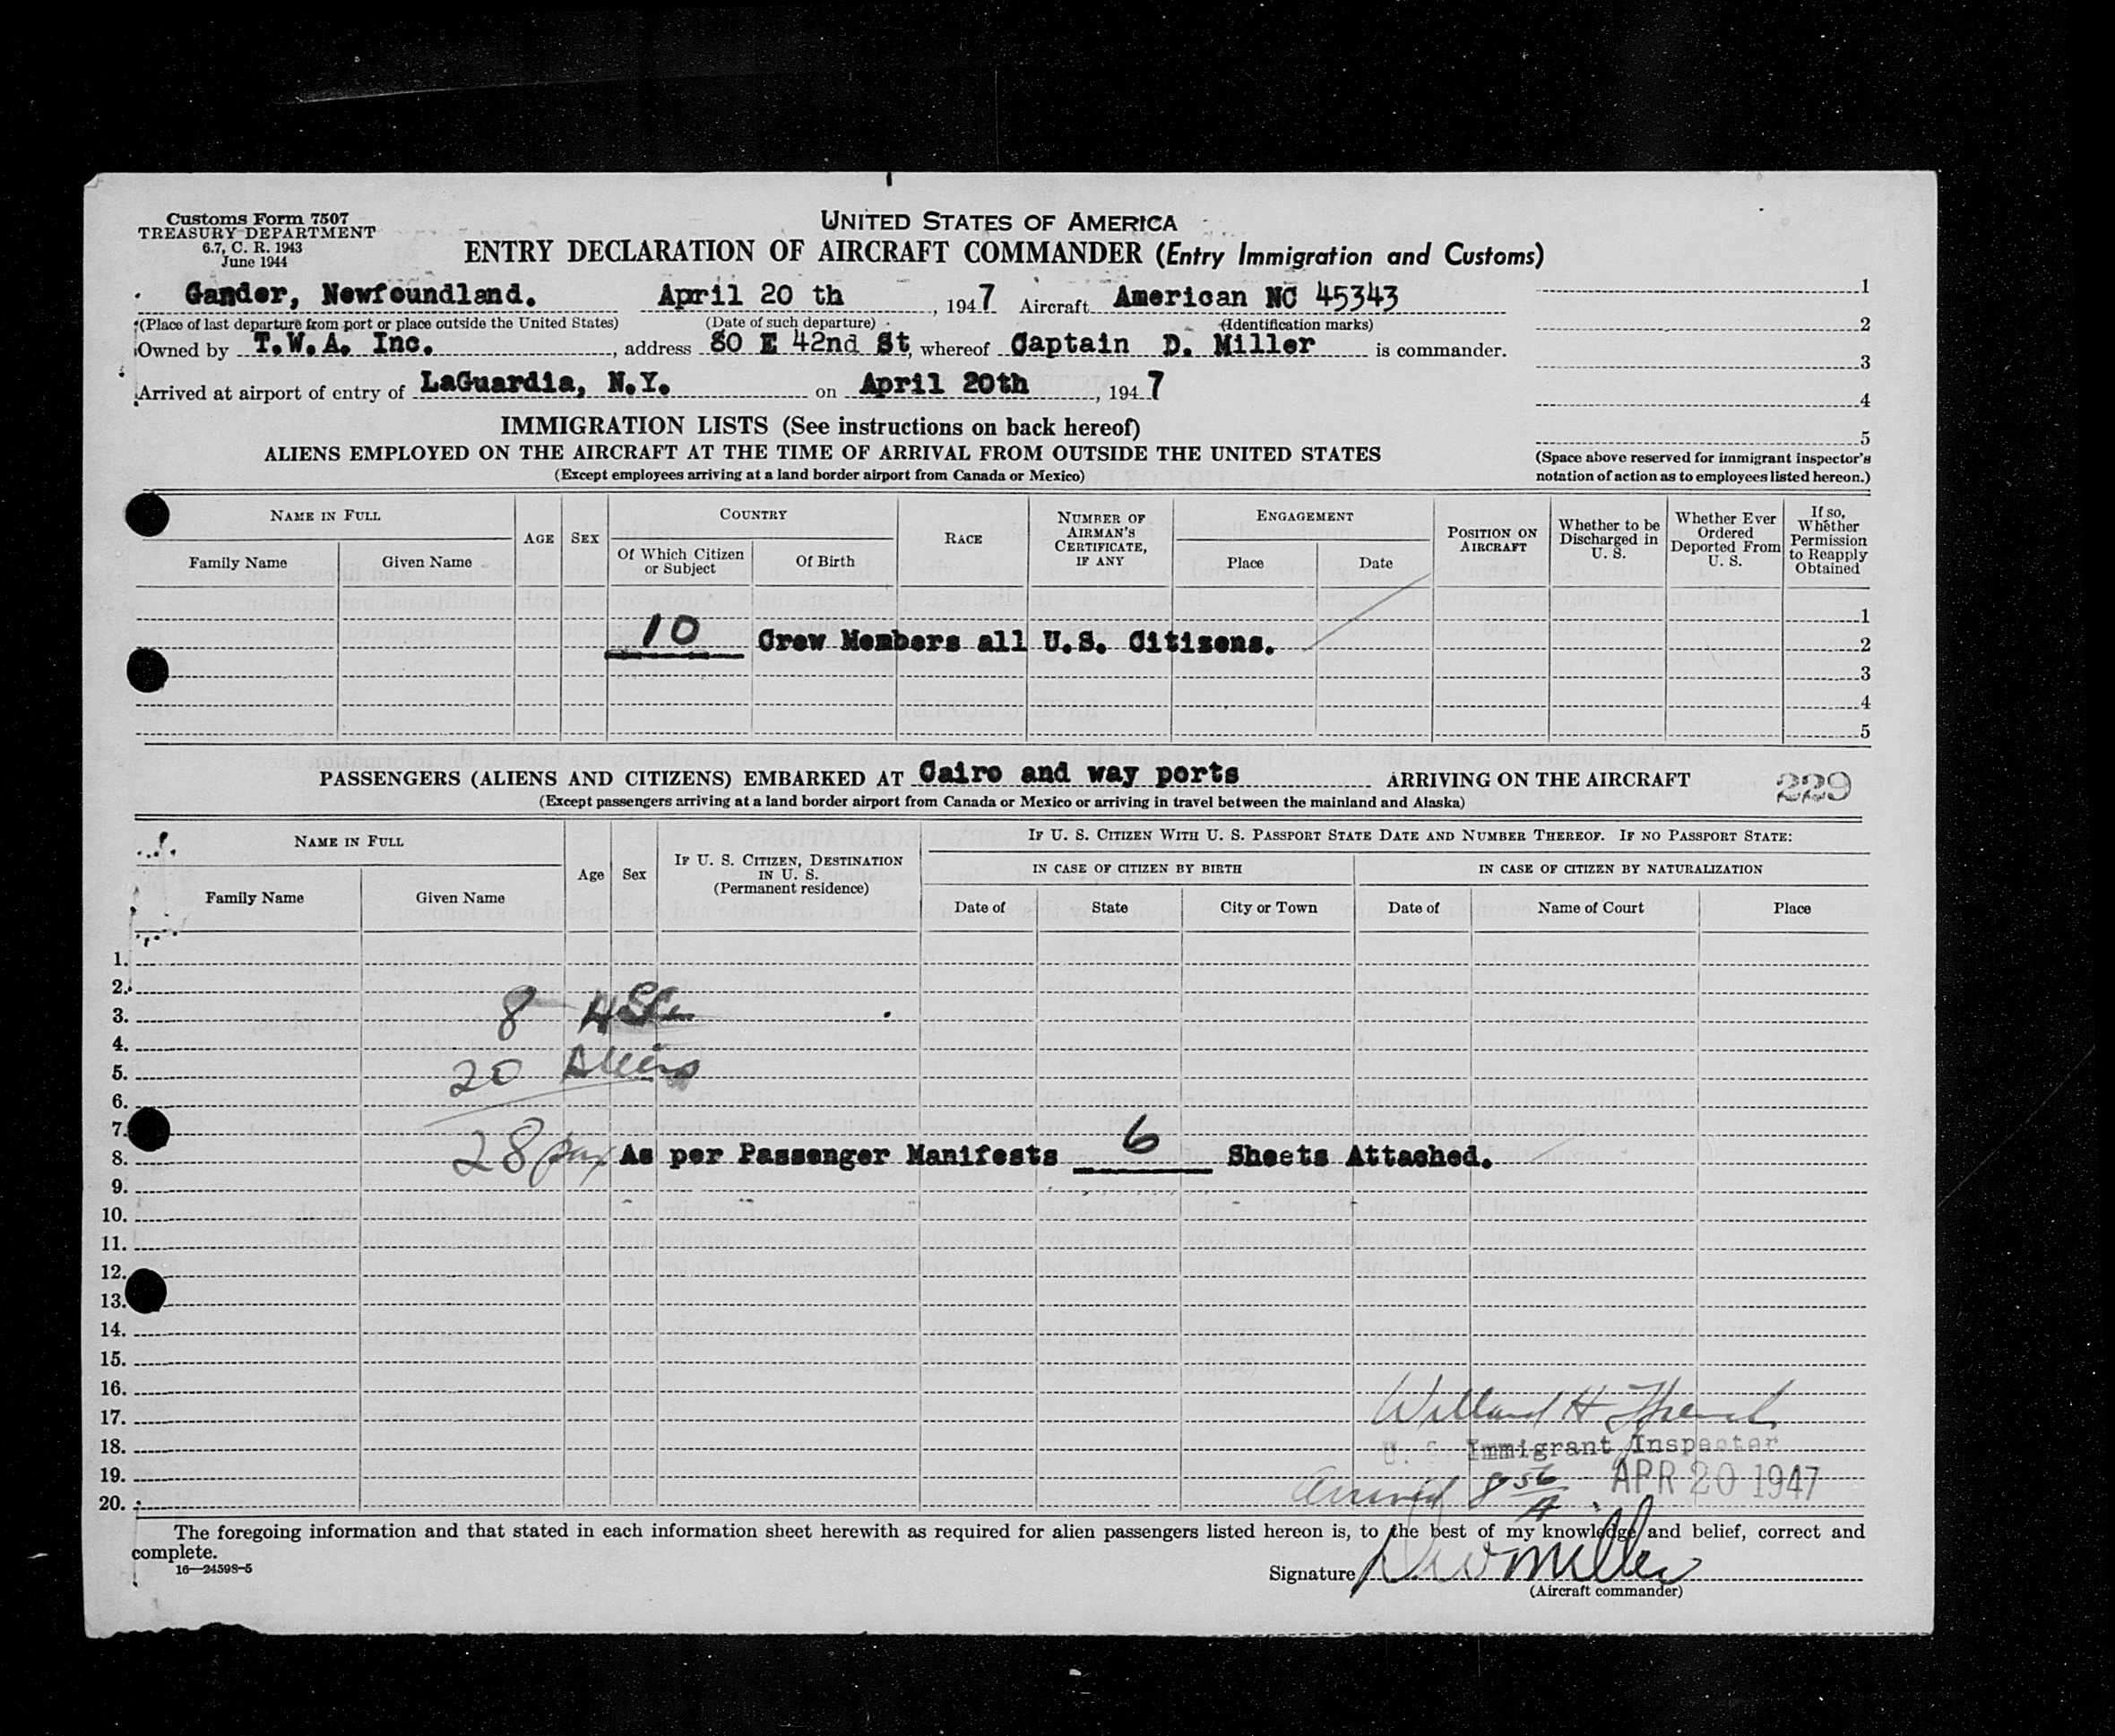 Customs Form 7507
TREASURY DEPARTMENT
6.7, C. R. 1943
June 1944
UNITED STATES OF AMERICA
ENTRY DECLARATION OF AIRCRAFT COMMANDER (Entry Immigration and Customs)
Gander, Newfoundland. April 20 th, 1947 Aircraft American NC 45343
(Place of last departure from port or place outside the United States) (Date of such departure) (Identification marks)
Owned by T.W.A. Inc., address 80 E 42nd St, whereof Captain D. Miller is commander.
Arrived at airport of entry of LaGuardia, N.Y. on April 20th, 1947
1
2
3
4
5
(Space above reserved for immigrant inspector's
notation of action as to employees listed hereon.)
IMMIGRATION LISTS (See instructions on back hereof)
ALIENS EMPLOYED ON THE AIRCRAFT AT THE TIME OF ARRIVAL FROM OUTSIDE THE UNITED STATES
(Except employees arriving at a land border airport from Canada or Mexico)
NAME IN FULL
Family Name
Given Name
AGE
SEX
COUNTRY
Of Which Citizen
or Subject
Of Birth
RACE
NUMBER OF
AIRMAN'S
CERTIFICATE,
IF ANY
ENGAGEMENT
Place
Date
POSITION ON
AIRCRAFT
Whether to be
Discharged in
U. S.
Whether Ever
Ordered
Deported From
U. S.
If so,
Whether
Permission
to Reapply
Obtained
1
10 Crew Members all U.S. Citizens. 2
3
4
5
PASSENGERS (ALIENS AND CITIZENS) EMBARKED AT Cairo and way ports ARRIVING ON THE AIRCRAFT 229
(Except passengers arriving at a land border airport from Canada or Mexico or arriving in travel between the mainland and Alaska)
NAME IN FULL
Family Name
Given Name
Age
Sex
IF U. S. CITIZEN, DESTINATION
IN U. S.
(Permanent residence)
IF U. S. CITIZEN WITH U. S. PASSPORT STATE DATE AND NUMBER THEREOF. IF NO PASSPORT STATE:
IN CASE OF CITIZEN BY BIRTH
IN CASE OF CITIZEN BY NATURALIZATION
Date of
State
City or Town
Date of
Name of Court
Place
1.
2.
3. 8
4.
5. 20 Aliens
6.
7.
8. 28 pax As per Passenger Manifests 6 Sheets Attached.
9.
10.
11.
12.
13.
14.
15.
16.
17. Willard H
18. U. S. Immigrant Inspector
19. Arrived 8 56 A APR 20 1947
20.
The foregoing information and that stated in each information sheet herewith as required for alien passengers listed hereon is, to the best of my knowledge and belief, correct and
complete.
16—24598-5
Signature D W Miller
(Aircraft commander)